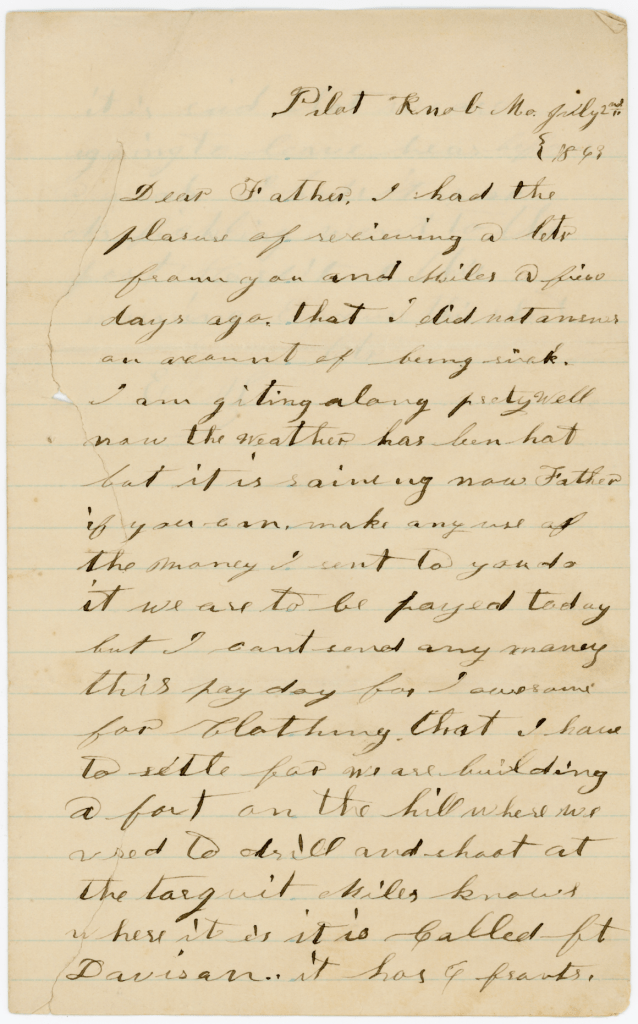 Pilot Knob Mo. July 2nd
1863
Dear Father. I had the
plasure of recieving a letr
fraum you and Miles a fiew
days ago. that I did not answer
on acount of being sick.
I am giting along prety well
now the weather has ben hot
but it is raineing now Father
if you can. make any use of
the money I sent to you do
it we are to be payed today
but I cant send any money
this pay day for I awe some
for Clothing that I have
to settle for we are building
a fort on the hill where we
used to drill and shoot at
the targuit Miles knows
where it is it is Called ft
Davison.. it has 6 fronts.